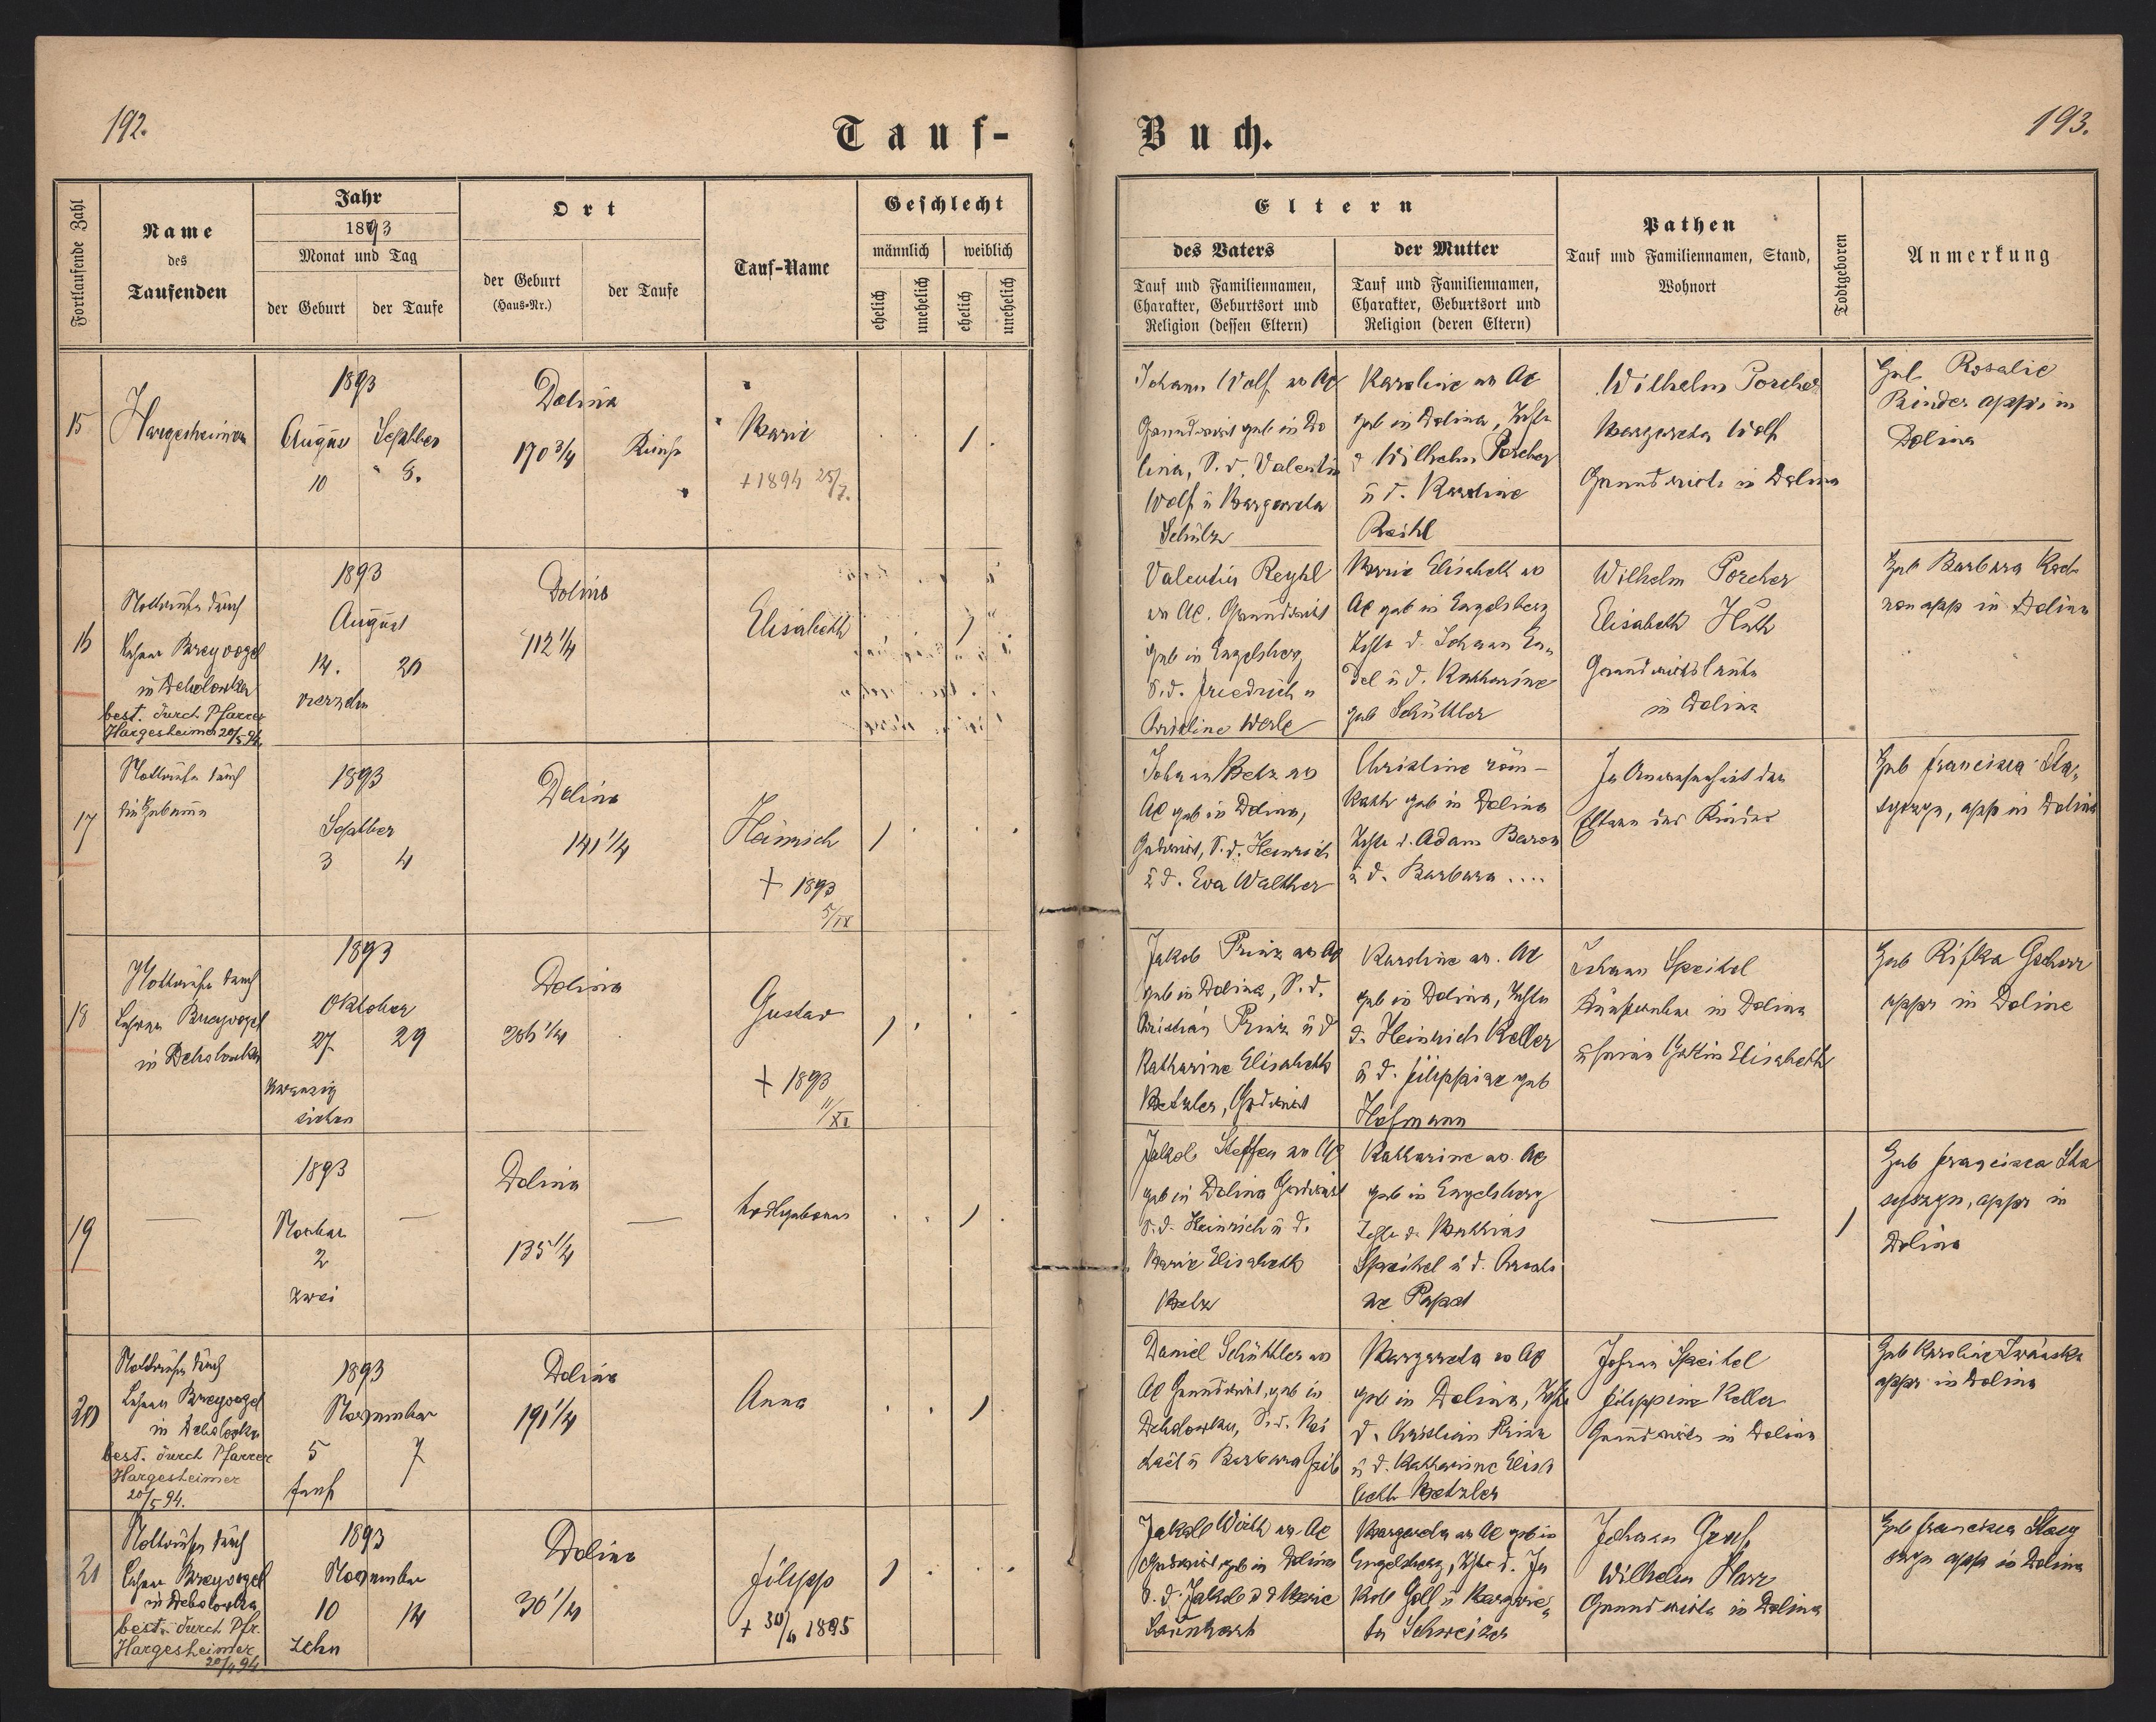 192.
Tauf-
Buch.
193.
Fortlaufende Zahl
Name
des
Taufenden
Jahr
1893
Monat und Tag
der Geburt
der Taufe
Ort
der Geburt
(Haus-Nr.)
der Taufe
Tauf-Name
Geschlecht
männlich
weiblich
ehelich
unehelich
ehelich
unehelich
Eltern
des Vaters
Tauf und Familiennamen,
Charakter, Geburtsort und
Religion (dessen Eltern)
der Mutter
Tauf und Familiennamen,
Charakter, Geburtsort und
Religion (deren Eltern)
Pathen
Tauf und Familiennamen, Stand,
Wohnort
Todtgeboren
Anmerkung
15
Hargesheimer
1893
August
10
Septber
8.
Dolina
170 3/4
Marie
+ 1894 25/7.
1
Johann Wolf ev AC
Grundwirt geb in Do
lina, S. d. Valentin
Wolf ü Margareta
Schülz
Karoline ev AC
geb in Dolina, Tochter
d Wilhelm Porcher
ü d. Karoline
Wilhelm Porcher
Margareta Wolf
Grundwirte in Dolina
Rosalie
Binder appr in
Dolina
16
Nottaufe durch
Lehrer Breyvogel
in Debolowka
best. durch Pfarrer
Hargesheimer 20/5 94.
1893
August
14.
20
vierzehn
Dolina
112 1/4
Elisabeth
1
Valentin Reyhl
ev AC. Grundwirt
geb in Engelsberg
S. d. Friedrich u
Werle
Marie Elisabeth ev
AC geb in Engelsberg
Tochter d. Johann
del ü d. Katharine
geb Schüttler
Wilhelm Porcher
Elisabeth Huth
Grundwirtsleute
in Dolina
Heb Barbara
app in Dolina
17
Nottaufe durch
die Hebamme
1893
Septber
3
4
Dolina
141 1/4
Heinrich
+ 1893
5/IX
1
Johann Betz ev
AC geb in Dolina,
Grdwirt, S. d. Heinrich
ü d. Eva Walther
Christine röm-
kath geb in Dolina
Tochter d. Adam Baron
ü d. Barbara ....
In Anwesenheit der
Eltern des Kindes
Heb Francisca
app in Dolina
18
Nottaufe durch
Lehrer Breyvogel
in Debolowka
1893
Oktober
27.
29
zwanzig
sieben
Dolina
206 1/4
Gustav
+ 1893
11/XI
1
Jakob Prinz ev AC
geb in Dolina, S. d.
Christian Prinz ü d
Katharine Elisabeth
Metzler, Grdwirt
Karoline ev. AC
geb in Dolina, Tochter
d. Heinrich Keller
ü d. Filippine geb
Hofmann
Johann Speitel
in Dolina
ü seine Gattin Elisabeth
Heb Rifka
appr in Doline
19
—
1893
Novber
2
zwei
—
Dolina
135 1/4
—
todtgeboren
1
Jakob Steffen ev AC
geb in Dolina Grdwirt
S. d. Heinrich ü d.
Marie Elisabeth
Betz
Katharine ev. AC
geb in Engelsberg
Tochter d. Mathias
Speitel ü d.
—
1
Heb Francisca
appr in
Dolina
20
Nottaufe durch
Lehrer Breyvogel
in Debolowka
best. durch Pfarrer
Hargesheimer
20/5 94.
1893
November
5
7
fünf
Dolina
191 1/4
Anna
1
Daniel Schüttler ev
AC Grundwirt, geb in
Debolowka, S. d.
ü Barbara
Margareta ev AC
geb in Dolina, Tochter
d. Christian Prinz
ü d. Katharine Elisa
beth Metzler
Johann Speitel
Filippine Keller
Grundwirte in Dolina
Heb Karoline
appr in Dolina
21
Nottaufe durch
Lehrer Breyvogel
in Debolowka
best. durch Pfr.
Hargesheimer
94.
1893
November
10
14
zehn
Dolina
30 1/4
Filipp
+ 30/4 1895
1
Jakob Wirth ev. AC
Grdwirt, geb in Dolina
S. d. Jakob ü d Marie
Margareta ev AC geb in
Engelsberg, Tochter d. Ja
kob Goll ü Margare
ta Schweizer
Johann Gruß
Wilhelm Harz
Grundwirte in Dolina
Heb Francisca
app in Dolina